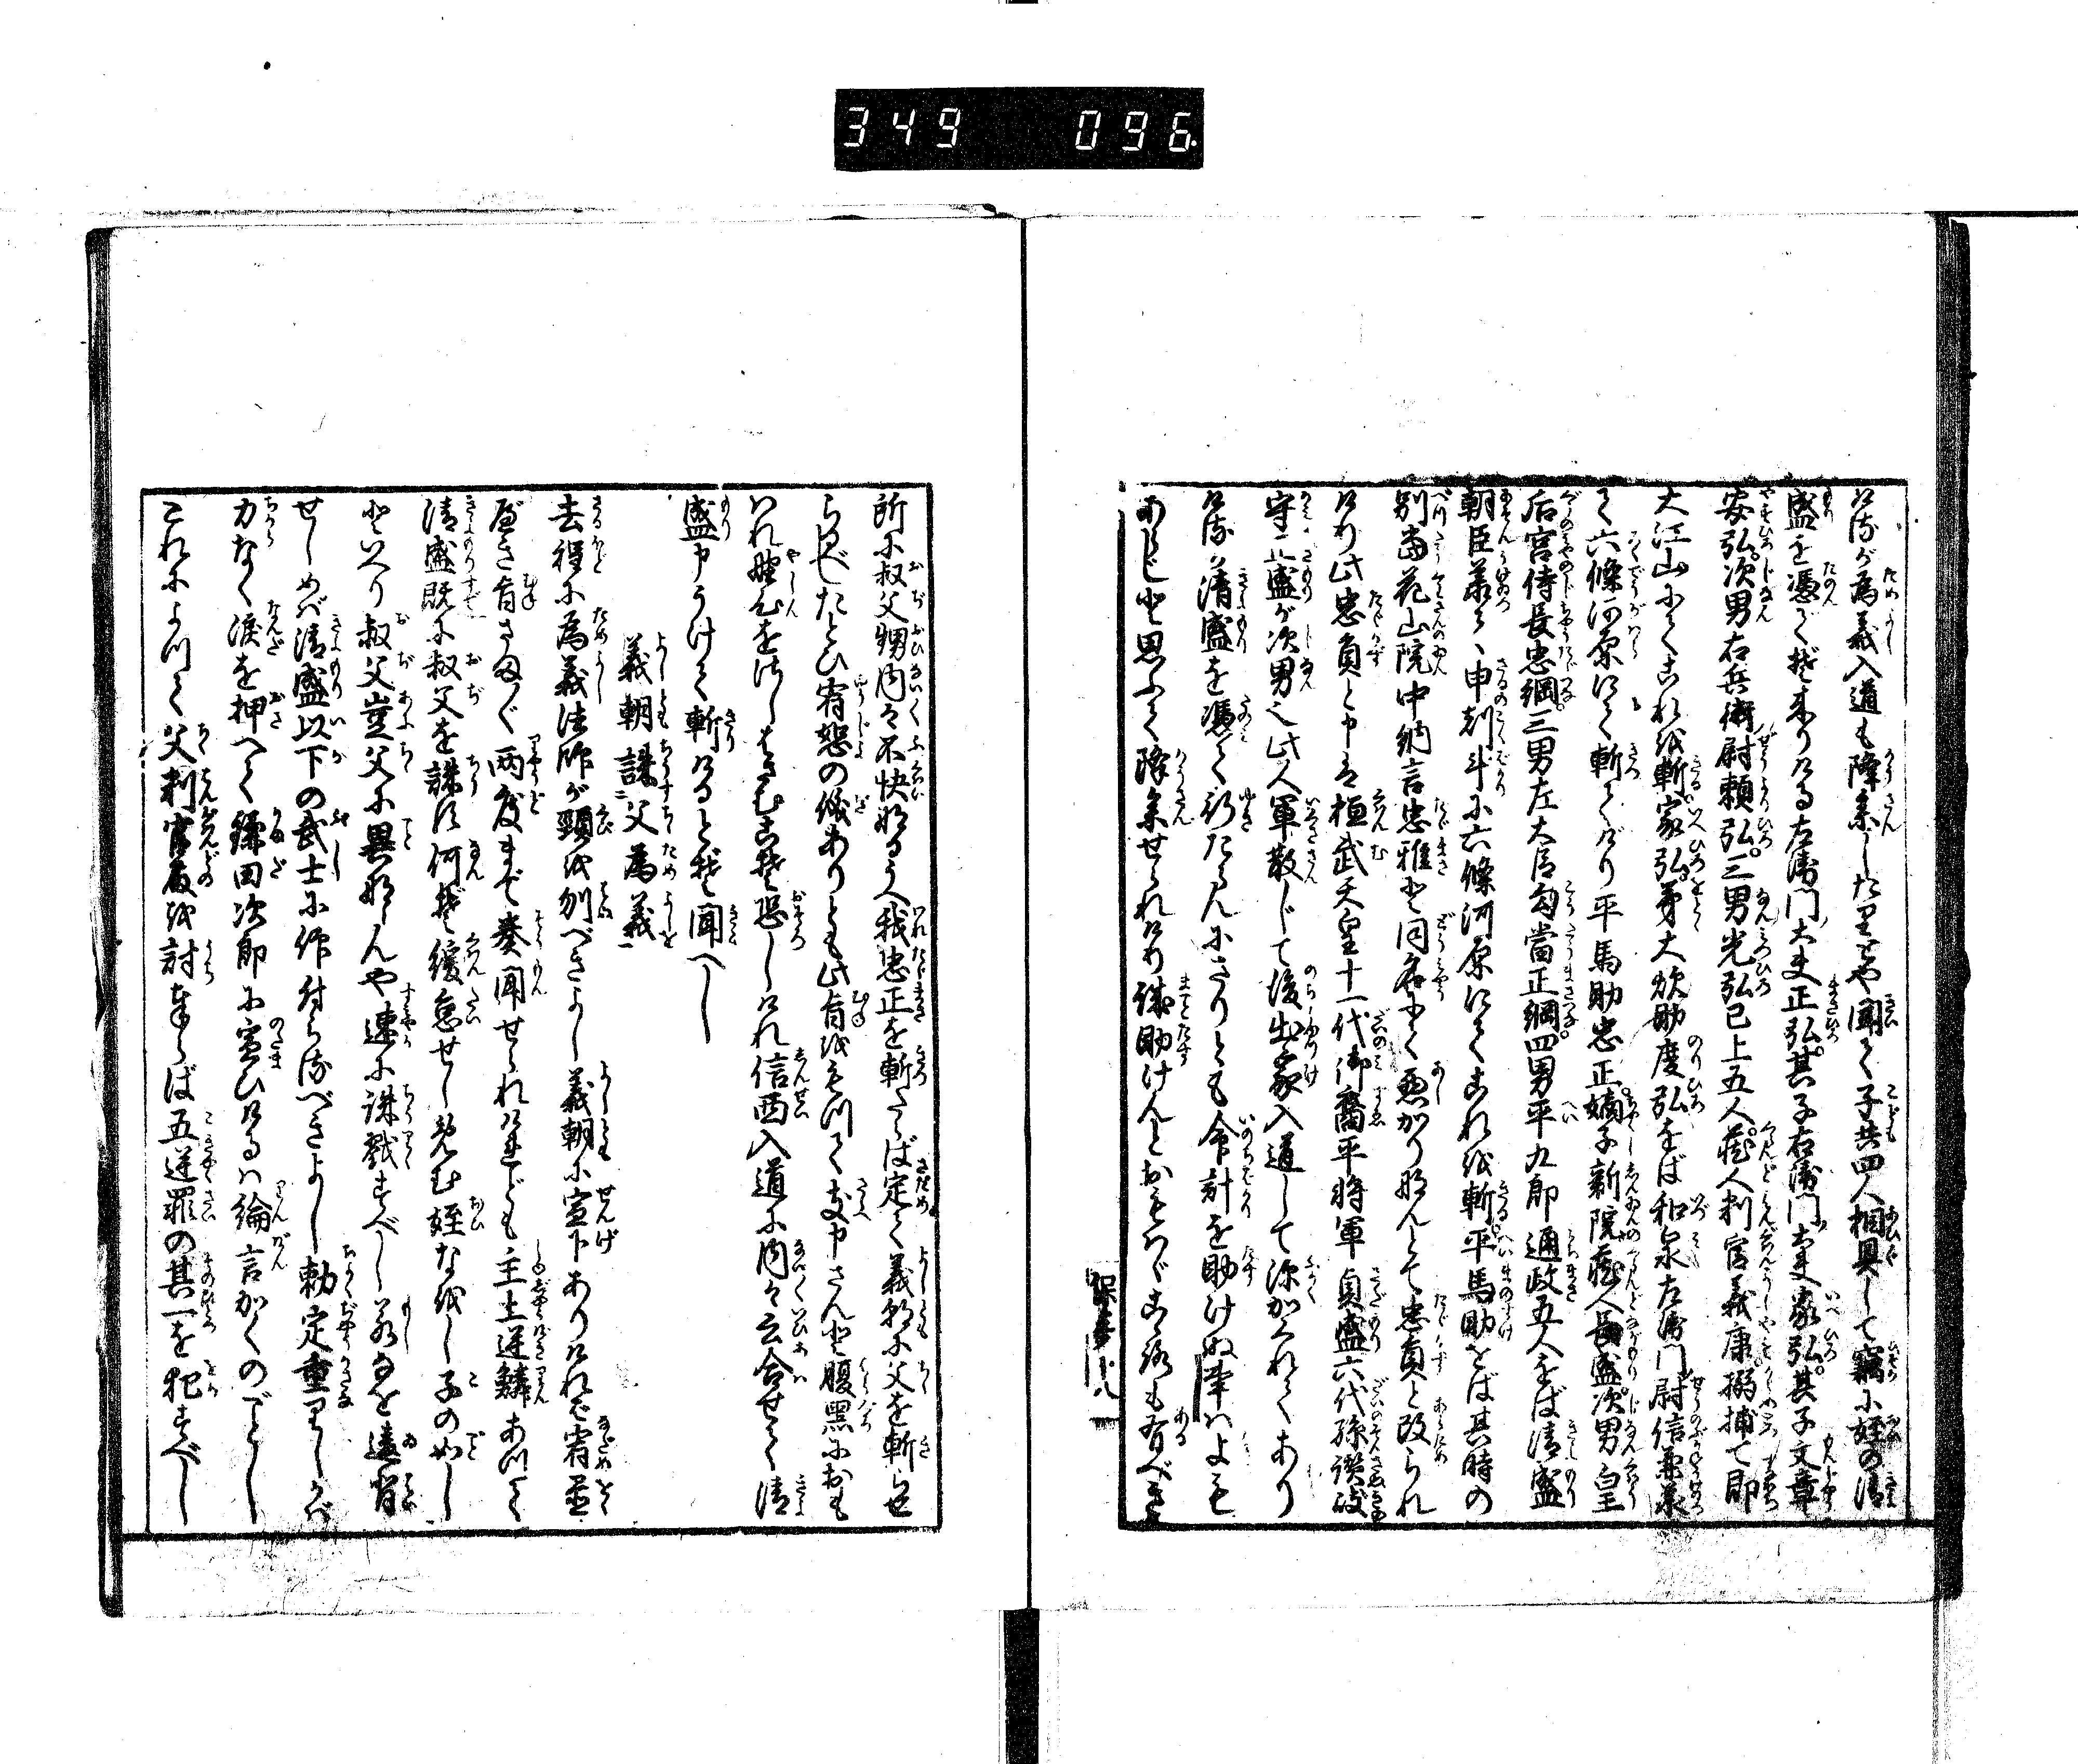 349 096
けるが為義入道も降参したりとや聞て子共四人相具して竊に姪の清
盛を憑てぞ来りける左衛門大夫正弘其子右衛門大夫家弘其子文章
安弘次男右兵衛尉頼弘三男光弘已上五人蔵人判官義康搦捕て即
大江山にてこれを斬家弘弟大炊助度弘をば和泉左衛門尉信兼承
て六條河原にて斬てけり平馬助忠正嫡子新院蔵人長盛次男皇
后宮侍長忠綱三男左大臣勾當正綱四男平九郎通政五人をば清盛
朝臣承て申刻斗に六條河原にてこれを斬平馬助をば其時の
別當花山院中納言忠雅と同名にて悪かりなんとて忠貞と改られ
けり此忠貞と申は桓武天皇十一代御裔平将軍貞盛六代孫讃岐
守正盛が次男也此人軍散じて後出家入道して深かくれてあり
けるが清盛を憑て行たらんにさりとも命計を助けぬ事はよも
あらじと思ふて降参せられけり誠助けんとおもはゞこそも有べきに
所に叔父甥内々不快なるうへ我忠正を斬たらば定て義朝に父を斬らせ
らるべしたとひ宥恕の儀ありとも此旨をもつて支申さんと腹黒におも
はれ野心をさしはさむこそ恐しけれ信西入道に内々云合せて清
盛申うけて斬けるとぞ聞へし
義朝誅父為義
去程に為義法師が頸を刎べきよし義朝に宣下ありければ宥置
べき旨さま〲両度まで奏聞せられけれども主上逆鱗あつて
清盛既に叔父を誅す何ぞ緩怠せしめむ姪なをし子の如し
といへり叔父豈父に異ならんや速に誅戮すべし若なを違背
せしめば清盛以下の武士に仰付らるべきよし勅定重かりしかば
力なく涙を押へて鎌田次郎に宣ひけるは綸言かくのごとし
これによつて父判官殿を討奉らば五逆罪の其一を犯すべし